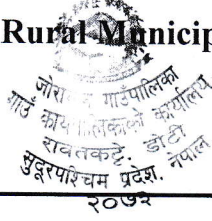 Rural Municip
गाउँपालिका
गाउँ कार्यपालिकाको कार्यालय
रावतकट्टे, डोटी
सुदूरपश्चिम प्रदेश, नेपाल
२०७३